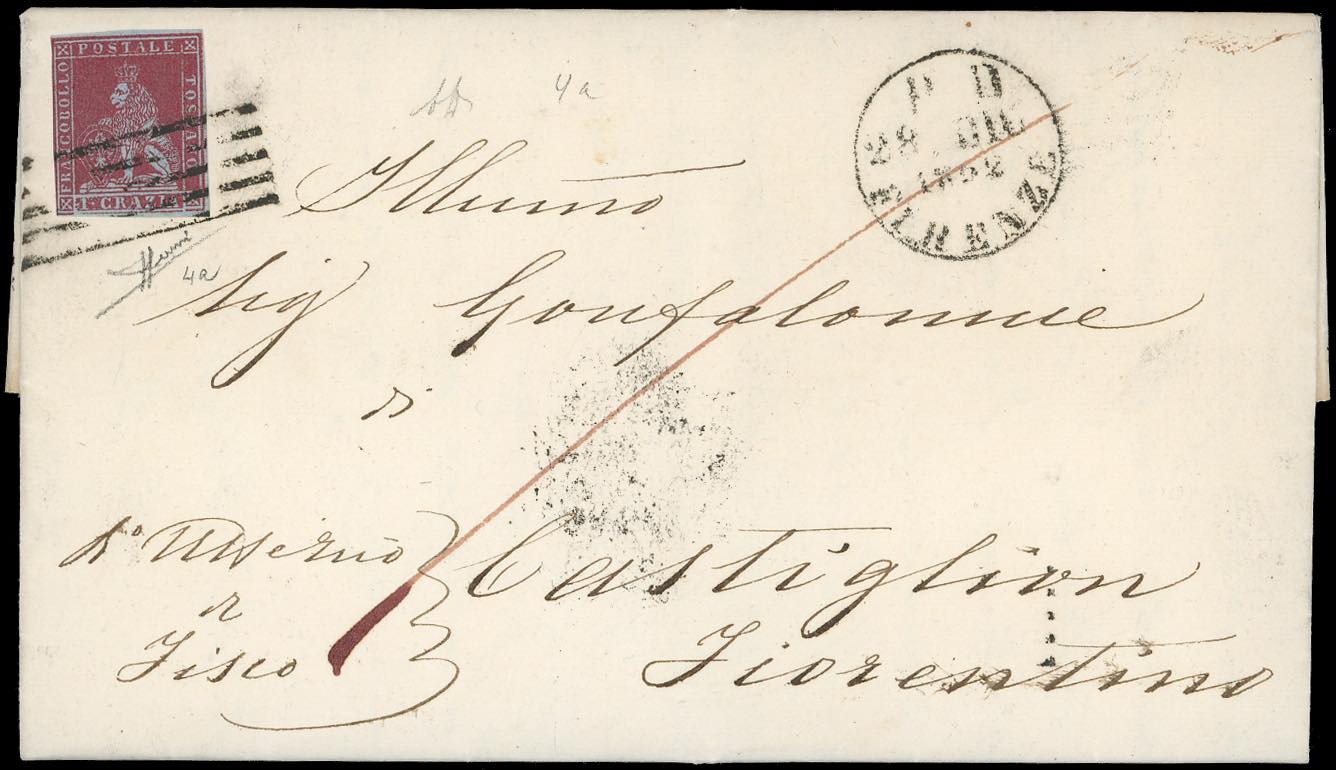 POSTALE
FRANCOBOLLO
TOSCANO
1 CRAZIA
4a
4a
P D
28 DIC
1852
FIRENZE
Illumo
Sig Gonfaloniere
di
Castiglion
Fiorentino
di
Fisco